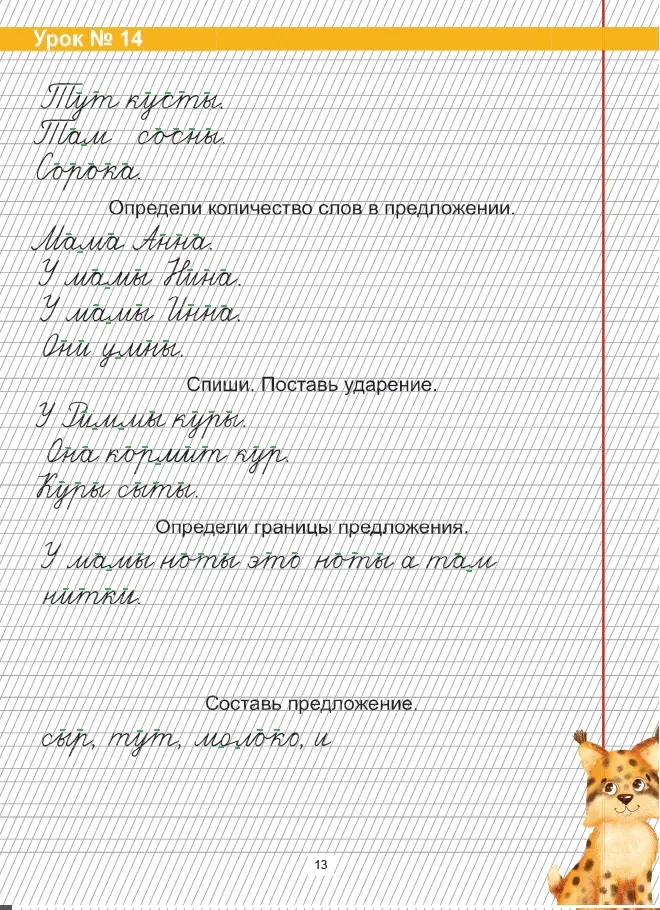 Урок № 14
Тут кусты.
Там сосны.
Сорока.
Определи количество слов в предложении.
Мама Анна.
У мамы Нина.
У мамы Инна.
Они умны.
Спиши. Поставь ударение.
У Риммы куры.
Она кормит кур.
Куры сыты.
Определи границы предложения.
У мамы ноты это ноты а там
нитки.
Составь предложение.
сыр, тут, молоко, и
13